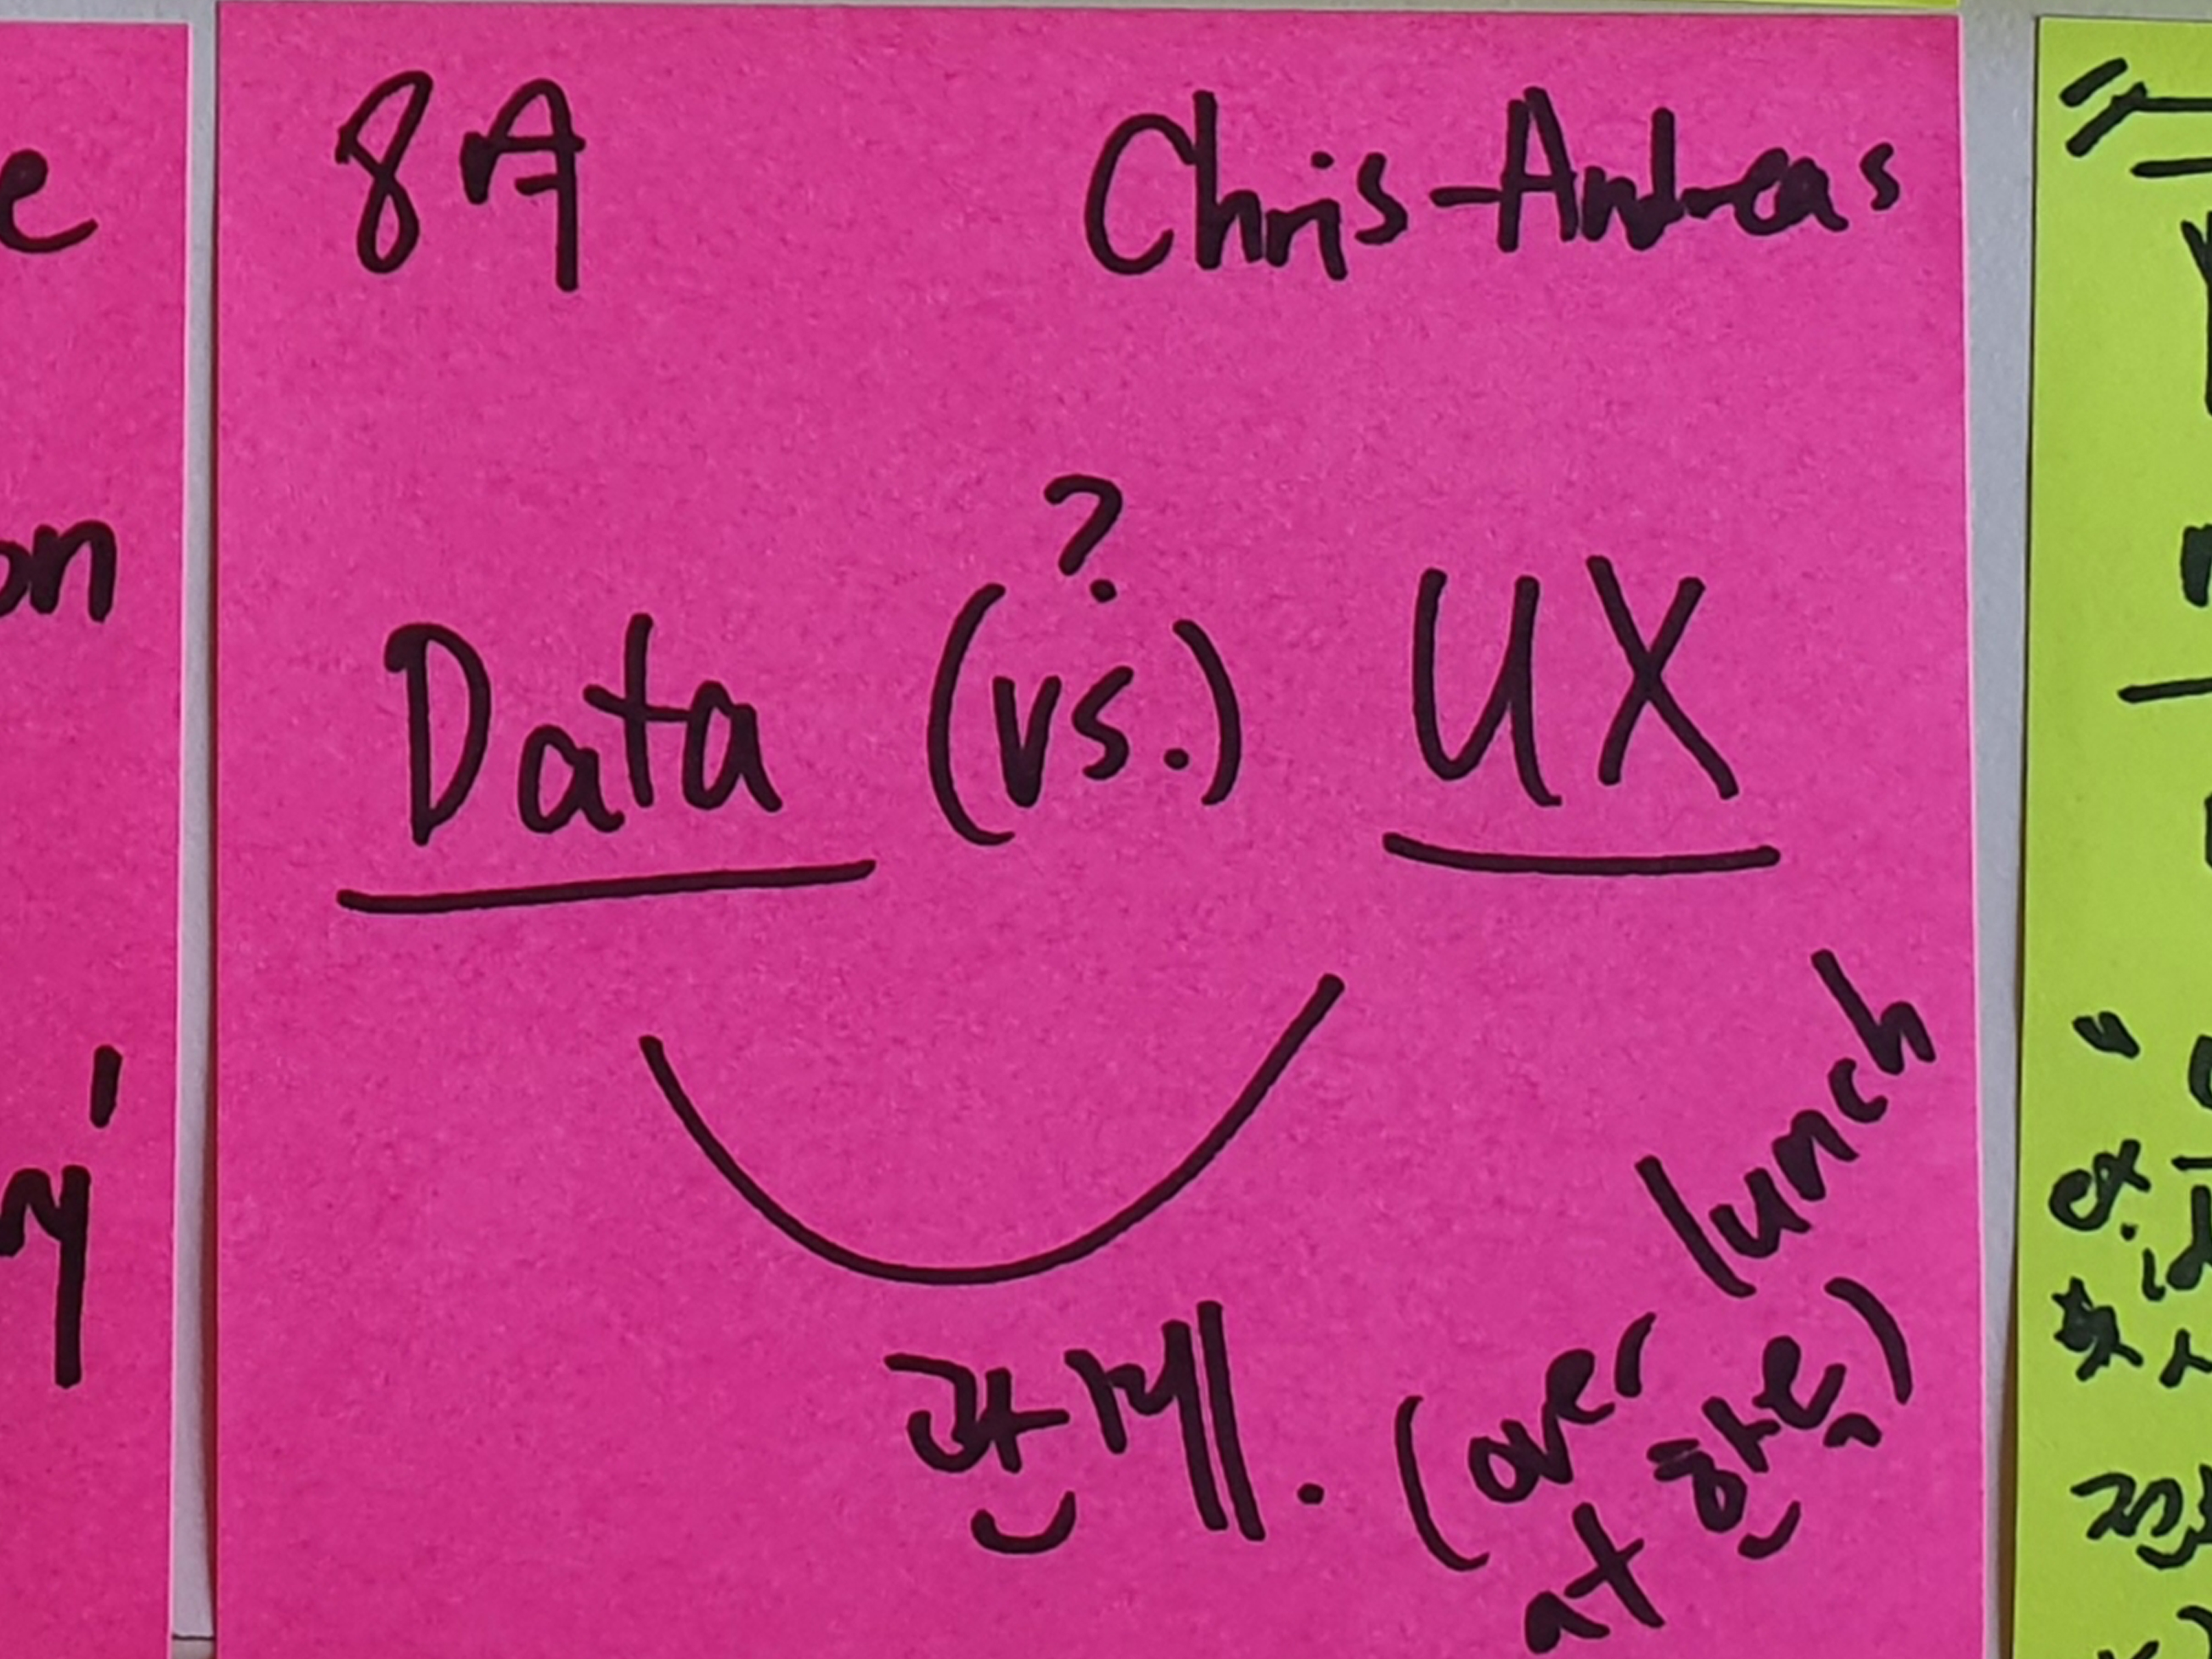 8A Chris-Andreas
?
Data (vs.) UX
관계. (over lunch
at
e
on
ex.